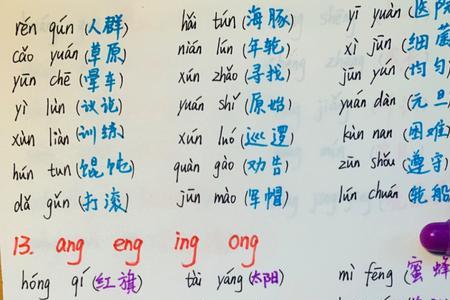 rén qún (人群) hǎi tún (海豚) yī yuàn (医院
cǎo yuán (草原) nián lún (年轮) xì jūn (细菌
yūn chē (晕车) xún zhǎo (寻找) jūn yún (均匀
yì lùn (议论) yuán shǐ (原始) yuán dàn (元旦
xùn liàn (训练) xún luó (巡逻) kùn nan (困难
hún tun (馄饨) quàn gào (劝告) zūn shǒu (遵守
dǎ gǔn (打滚) jūn mào (军帽) lún chuán (轮船
13. ang eng ing ong
hóng qí (红旗) tài yáng (太阳) mì fēng (蜜蜂